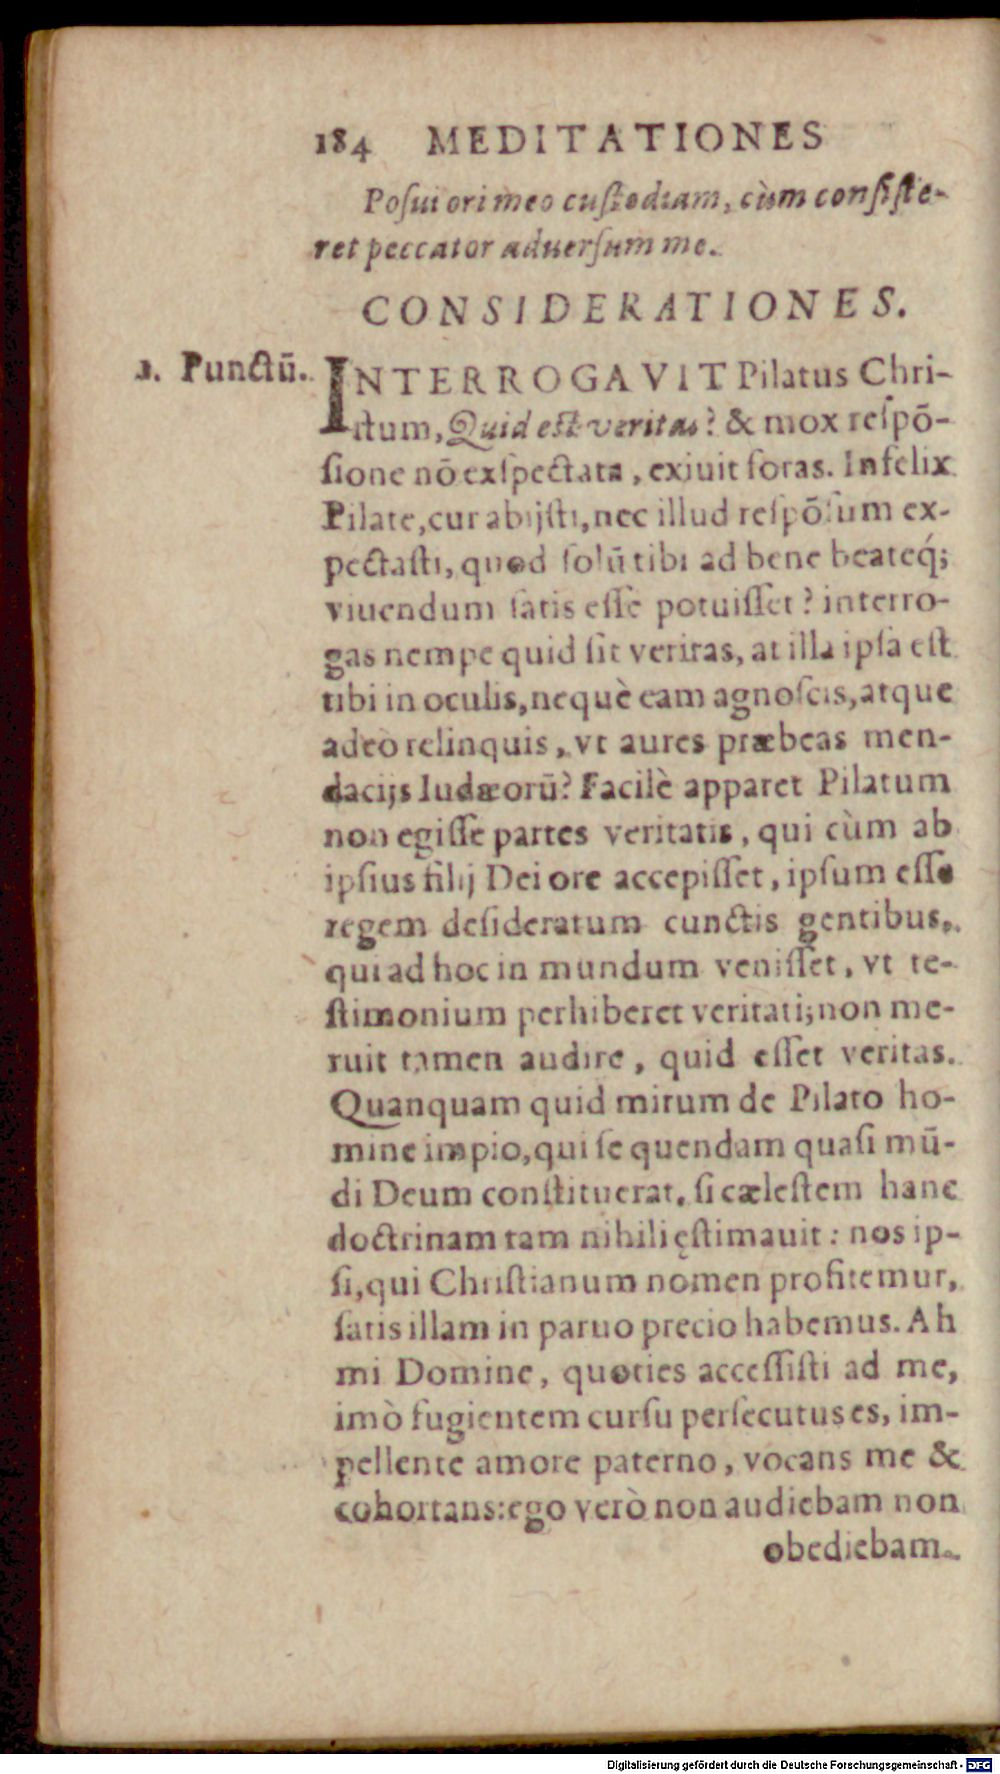 184 MEDITATIONES
Poſui ori meo cuſtodiam, cùm conſiſte-
ret peccator aduerſum me.
CONSIDERATIONES.
1. Punctū.
INTERROGAVIT Pilatus Chri-
ſtum, Quid eſt veritas? & mox reſpō-
ſione nō exſpectata, exiuit foras. Infelix
Pilate, cur abijſti, nec illud reſpōſum ex-
pectaſti, quod ſolū tibi ad bene beateq́;
viuendum ſatis eſſe potuiſſet? interro-
gas nempe quid ſit veritas, at illa ipſa eſt
tibi in oculis, nequè eam agnoſcis, atque
adeo relinquis, vt aures præbeas men-
dacijs Iudæorū? Facilè apparet Pilatum
non egiſſe partes veritatis, qui cùm ab
ipſius filij Dei ore accepiſſet, ipſum eſſe
regem deſideratum cunctis gentibus,
qui ad hoc in mundum veniſſet, vt te-
ſtimonium perhiberet veritati; non me-
ruit tamen audire, quid eſſet veritas.
Quanquam quid mirum de Pilato ho-
mine impio, qui ſe quendam quaſi mū-
di Deum conſtituerat, ſi cæleſtem hanc
doctrinam tam nihili ęſtimauit: nos ip-
ſi, qui Chriſtianum nomen profitemur,
ſatis illam in paruo precio habemus. Ah
mi Domine, quoties acceſſiſti ad me,
imò fugientem curſu perſecutus es, im-
pellente amore paterno, vocans me &
cohortans: ego verò non audiebam non
obediebam.
Digitalisierung gefördert durch die Deutsche Forschungsgemeinschaft - DFG